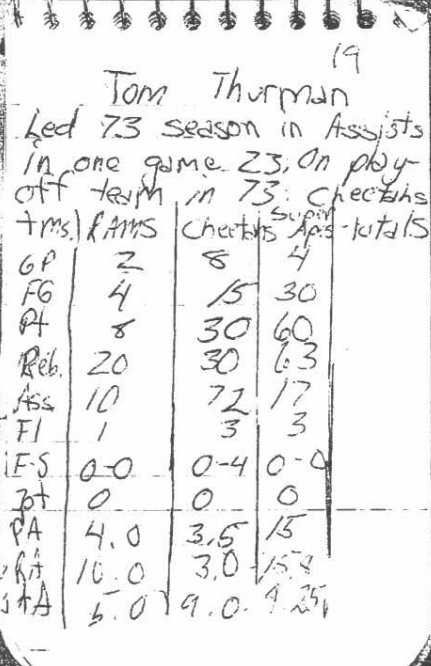 19
Tom Thurman
Led 73 season in Assists
in one game 23. On play-
off team in 73. Cheetahs
tms. RAMS Cheetahs Super Apes - totals
GP 2 8 4
FG 4 15 30
Pt 8 30 60
Reb. 20 30 63
Ass 10 72 17
Fl 1 3 3
F-S 0-0 0-4 0-0
tot 0 0 0
PA 4.0 3.5 15
RA 10.0 3.0 15.8
stA 5.0 9.0 4.25